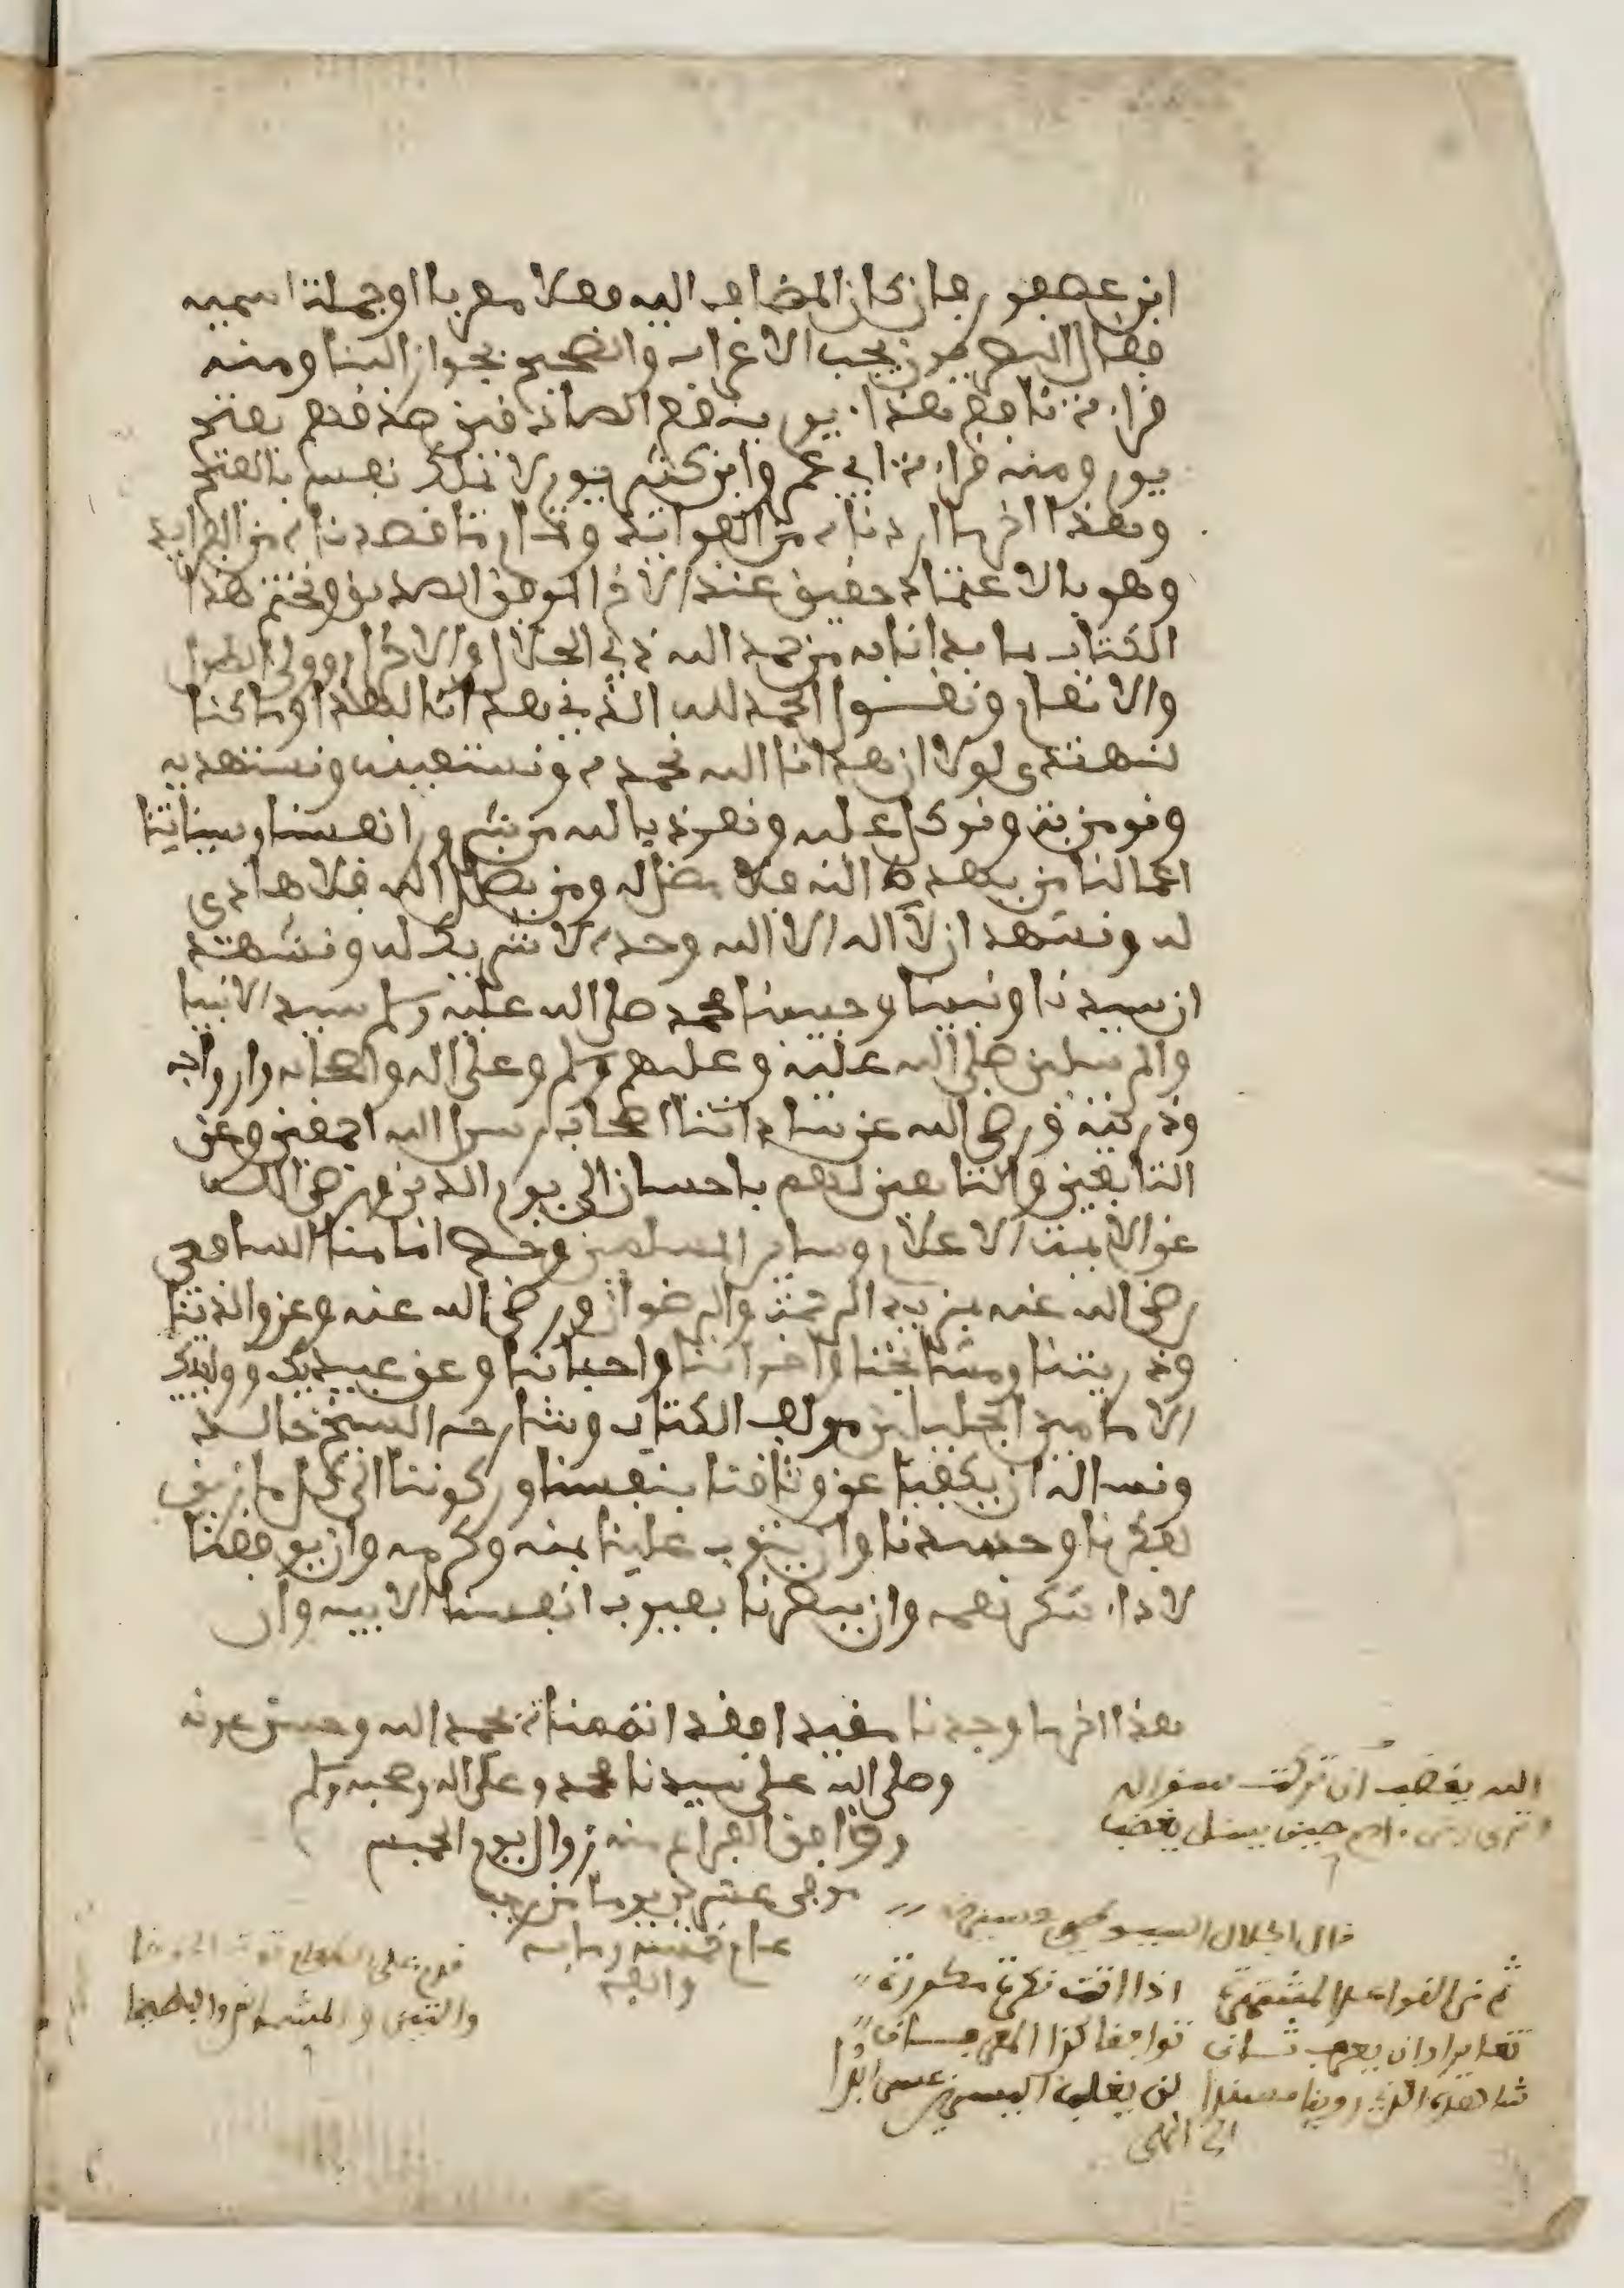 ابن عصفور فان كان المضاف اليه فعلا معربا او جملة اسمية
فقال البصريون يجب الاعراب والصحيح جواز البنا ومنه
قراءة نافع هذا يوم ينفع الصادقين صدقهم بفتح
يوم ومنه قراءة ابي عمر وابن كثير يوم لا تملك نفس بالفتح
وهذا اخر ما اردناه من الفوايد وتمام ما قصدناه من الفرايد
وهو بالاعتماد حقيق عند الاخ الموفق الصديق ونختم هذا
الكتاب بما بداناه من حمد الله ذي الجلال والاكرام وولي الطول
والانعام ونقول الحمد لله الذي هدانا لهذا وما كنا
لنهتدي لولا ان هدانا الله نحمده ونستعينه ونستهديه
ونومن به ونتوكل عليه ونعوذ بالله من شرور انفسنا وسيئات
اعمالنا من يهده الله فلا مضل له ومن يضلل الله فلا هادي
له ونشهد ان لا اله الا الله وحده لا شريك له ونشهد
ان سيدنا ونبينا وحبيبنا محمد صلى الله عليه وسلم سيد الانبيا
والمرسلين صلى الله عليه وعليهم وسلم وعلى اله واصحابه وازواجه
وذريته ورضي الله عن ساداتنا اصحاب رسول الله اجمعين وعن
التابعين والتابعين لهم باحسان الى يوم الدين ورضي الله
عن الايمة الاعلام وساير المسلمين وخص امامنا الشافعي
رضي الله عنه بمزيد الرحمة والرضوان ورضي الله عنه وعن والدينا
وذريتنا ومشايخنا واخواننا واحبائنا وعن عبيدك
الامامين الجليلين مولف الكتاب وشارحه الشيخ خالد
ونساله ان يكفينا عن وثاقنا بنفسنا وركوننا الى كل ما
بفكرنا وحسدنا وان يتوب علينا بمنه وكرمه وان يوفقنا
لاداء شكر نعمه وان يبصرنا بعيوب انفسنا الابيه وان
هذا اخر ما وجدنا مقيدا وقد اتممناه بحمد الله وحسن عونه
وصلى الله على سيدنا محمد وعلى اله وصحبه وسلم
ووافق الفراغ منه زوال يوم الخميس
عشرين يوما من رجب
عام ومايه
والف
الله يغضب ان تركت سواله
وبني ادم حين يسئل يغضب
قال الجلال السيوطي
ثم من القواعد المشتهرة اذا اتت نكرة مكررة
تغايرا وان يعرف ثان توافقا كذا المعرفان
شاهده الذي روينا مسندا لن يغلب اليسرين عسر ابدا